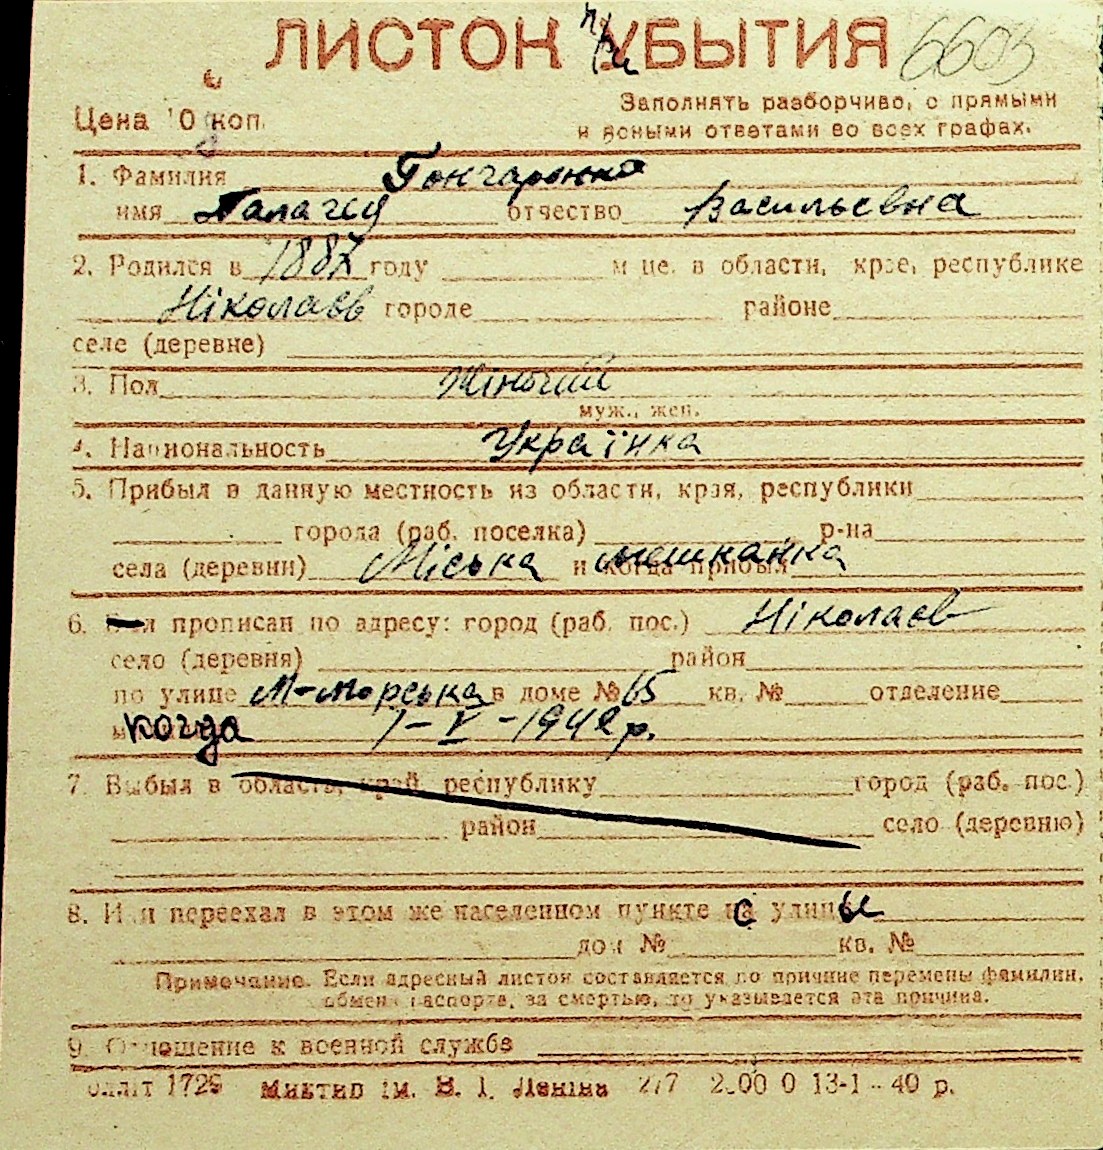 ЛИСТОК при УБЫТИЯ 6603
Цена 10 коп.
Заполнять разборчиво, с прямыми
и ясными ответами во всех графах.
1. Фамилия Гончаренко
имя Палагея отчество Васильевна
2. Родился в 1887 году м-це. в области, крае, республике
Ніколаєв городе районе
селе (деревне)
3. Пол Жіночий
муж., жен.
4. Национальность Українка
5. Прибыл в данную местность из области, края, республики
города (раб. поселка) р-на
села (деревни) Міська мешканка и когда прибыл
6. прописан по адресу: город (раб. пос.) Ніколаєв
село (деревня) район
по улице М-Морська в доме № 65 кв. № отделение
когда 1-V-1942 р.
7. Выбыл в область, край, республику город (раб. пос.)
район село (деревню)
8. Или переехал в этом же населенном пункте с улицы
дом № кв. №
Примечание. Если адресный листок составляется по причине перемены фамилии,
обмена паспорта, за смертью, то указывается эта причина.
9. Отношение к военной службе
1729 Миктип ім. В. І. Леніна 277 13-1-40 р.